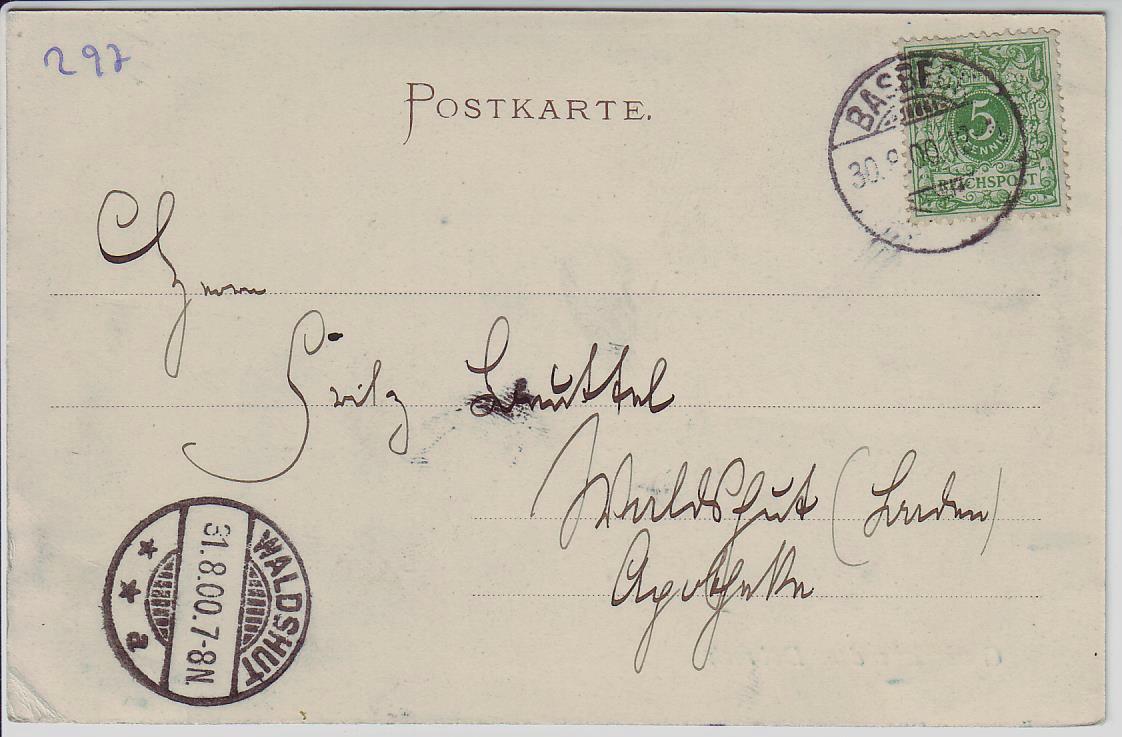 297
POSTKARTE.
BASBECK
30.8.00.
5
PFENNIG
REICHSPOST
Herrn
Fritz Buttel
Waldshut (Baden)
Apotheke
WALDSHUT
31.8.00.7-8N.
a